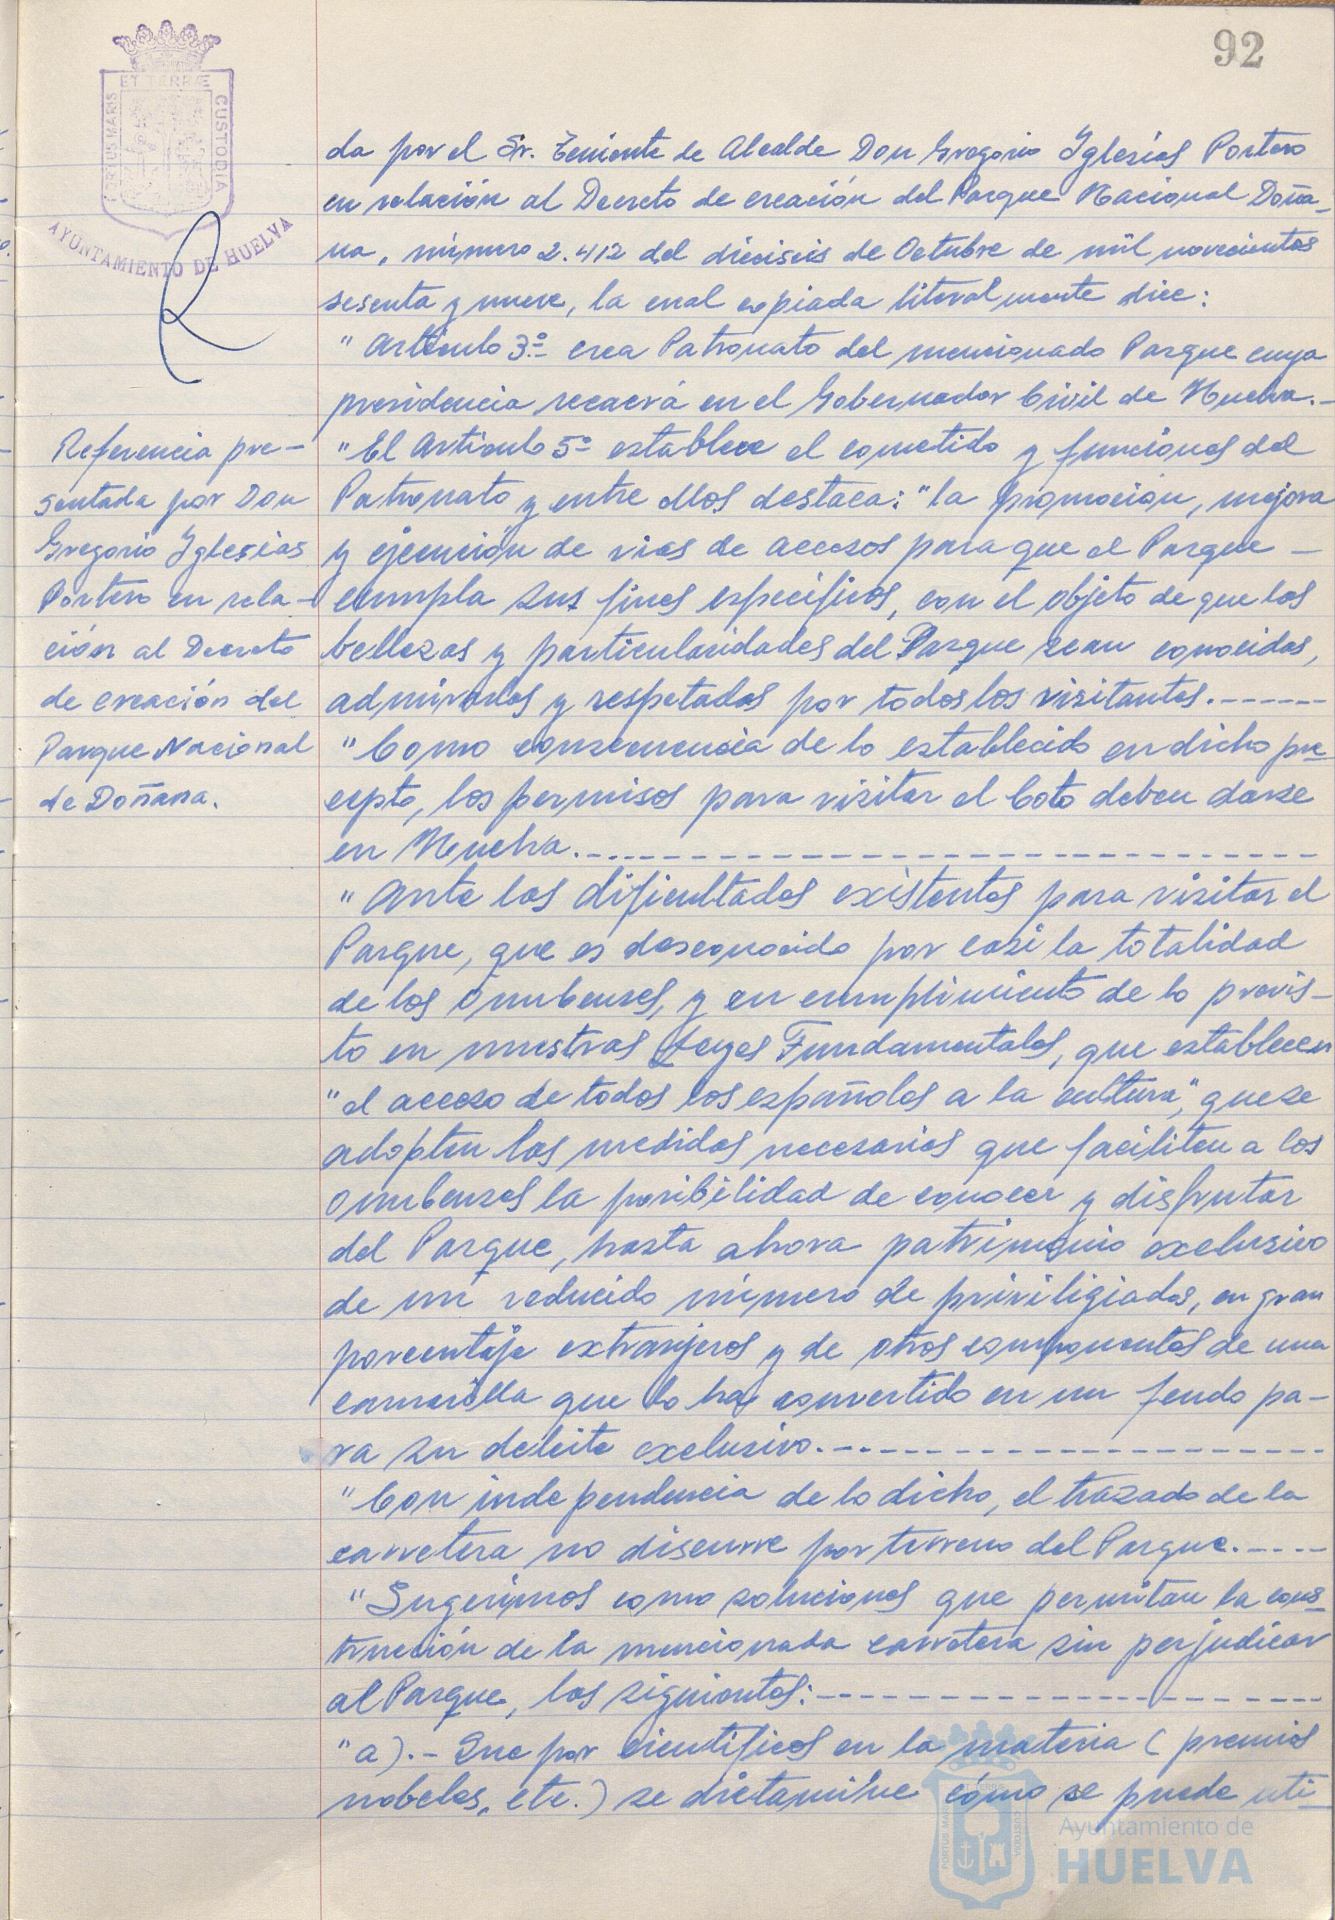 92
ET TERRÆ
PORTUS MARIS
CUSTODIA
AYUNTAMIENTO DE HUELVA
Referencia pre-
sentada por Don
Gregorio Yglesias
Portero en rela-
ción al Decreto
de creación del
Parque Nacional
de Doñana.
da por el Sr. Teniente de Alcalde Don Gregorio Yglesias Portero
en relación al Decreto de creación del Parque Nacional Doña-
na, número 2.412 del dieciseis de Octubre de mil novecientos
sesenta y nueve, la cual copiada literalmente dice:
" Artículo 3º.- crea Patronato del mencionado Parque cuya
presidencia recaerá en el Gobernador Civil de Huelva.-
"El Artículo 5º establece el cometido y funciones del
Patronato y entre ellos destaca: "la promoción, mejora
y ejecución de vias de accesos para que el Parque -
cumpla sus fines específicos, con el objeto de que las
bellezas y particularidades del Parque sean conocidas,
admiradas y respetadas por todos los visitantes.------
"Como consecuencia de lo establecido en dicho pre
cepto, los permisos para visitar el Coto deben darse
en Huelva.------------------------------
"Ante las dificultades existentes para visitar el
Parque, que es desconocido por casi la totalidad
de los onubenses, y en cumplimiento de lo previs-
to en nuestras Leyes Fundamentales, que establecen
"el acceso de todos los españoles a la cultura", que se
adopten las medidas necesarias que faciliten a los
onubenses la posibilidad de conocer y disfrutar
del Parque, hasta ahora patrimonio exclusivo
de un reducido número de priviligiados, en gran
porcentaje extranjeros y de otros componentes de una
camarilla que lo ha convertido en un feudo pa-
ra su deleite exclusivo.---------------------
"Con independencia de lo dicho, el trazado de la
carretera no discurre por terreno del Parque.-----
"Sugerimos como soluciones que permitan la cons-
trucción de la mencionada carretera sin perjudicar
al Parque, las siguientes:---------------------
"a).- Que por cientificos en la materia ( premios
nobeles, etc.) se dictamine cómo se puede uti-
Ayuntamiento de
HUELVA